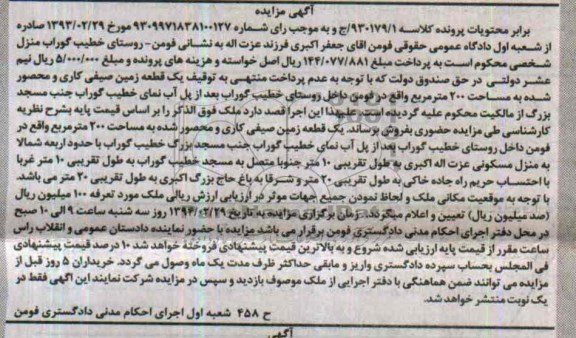 آگهی مزایده
برابر محتویات پرونده کلاسه ۹۳۰۱۷۹/۱/ج و به موجب رای شماره ۹۳۰۹۹۷۱۸۳۸۱۰۰۱۲۷ مورخ ۱۳۹۳/۰۲/۲۹ صادره
از شعبه اول دادگاه عمومی حقوقی فومن اقای جعفر اکبری فرزند عزت اله به نشانی فومن-روستای خطیب گوراب منزل
شخصی محکوم است به پرداخت مبلغ ۱۴۴/۰۷۷/۸۸۱ ریال اصل خواسته و هزینه های پرونده و مبلغ ۵/۰۰۰/۰۰۰ ریال نیم
عشر دولتی در حق صندوق دولت که با توجه به عدم پرداخت منتهی به توقیف یک قطعه زمین صیفی کاری و محصور
شده به مساحت ۲۰۰ مترمربع واقع در فومن داخل روستای خطیب گوراب بعد از پل آب نمای خطیب گوراب جنب مسجد
بزرگ از مالکیت محکوم علیه گردیده است علیهذا این اجرا قصد دارد ملک فوق الذکر را بر اساس قیمت پایه بشرح نظریه
کارشناسی طی مزایده حضوری بفروش برساند. یک قطعه زمین صیفی کاری و محصور شده به مساحت ۲۰۰ مترمربع واقع در
فومن داخل روستای خطیب گوراب بعد از پل آب نمای خطیب گوراب جنب مسجد بزرگ خطیب گوراب با حدود اربعه شمالا
به منزل مسکونی عزت اله اکبری به طول تقریبی ۱۰ متر جنوبا متصل به مسجد خطیب گوراب به طول تقریبی ۱۰ متر غربا
با احتساب حریم راه جاده خاکی به طول تقریبی ۲۰ متر و شرقا به باغ حاج بزرگ اکبری به طول تقریبی ۲۰ متر می باشد.
با توجه به موقعیت مکانی ملک و لحاظ نمودن جمیع جهات موثر در ارزیابی ارزش ریالی ملک مورد تعرفه ۱۰۰ میلیون ریال
(صد میلیون ریال) تعیین و اعلام میگردد. زمان برگزاری مزایده به تاریخ ۱۳۹۴/۰۲/۲۹ روز سه شنبه ساعت ۹ الی ۱۰ صبح
در محل دفتر اجرای احکام مدنی دادگستری فومن برقرار می باشد مزایده با حضور نماینده دادستان عمومی و انقلاب راس
ساعت مقرر از قیمت پایه ارزیابی شده شروع و به بالاترین قیمت پیشنهادی فروخته خواهد شد ۱۰ درصد قیمت پیشنهادی
فی المجلس بحساب سپرده دادگستری واریز و مابقی حداکثر ظرف مدت یک ماه وصول می گردد. خریداران ۵ روز قبل از
مزایده می توانند ضمن هماهنگی با دفتر اجرایی از ملک موصوف بازدید و سپس در مزایده شرکت نمایند این اگهی فقط در
یک نوبت منتشر خواهد شد.
ح ۴۵۸ شعبه اول اجرای احکام مدنی دادگستری فومن
آگهی